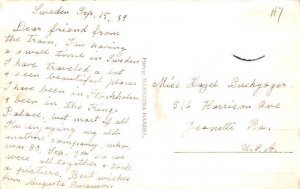 Sweden Sep. 15, 39
H7
Dear friend from
the train. I'm having
a swell time in Sweden
I have traveled a lot
& seen beautiful places
I have been in Stockholm
& been in the King's
Palace, but most of all
I'm enjoying my old
mother's company, who
was 90, Sep. 7, so we
were all together & took
a picture. Best wishes
from Augusta Swanson
Miss Hazel Bushyager
516 Harrison Ave
Jeanette Pa.
U.S.A.